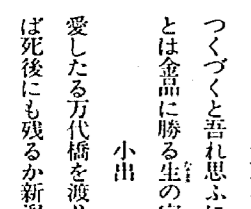 つくづくと吾れ思ふに
とは金品に勝る生の
小出
愛したる万代橋を渡り
ば死後にも残るか新潟